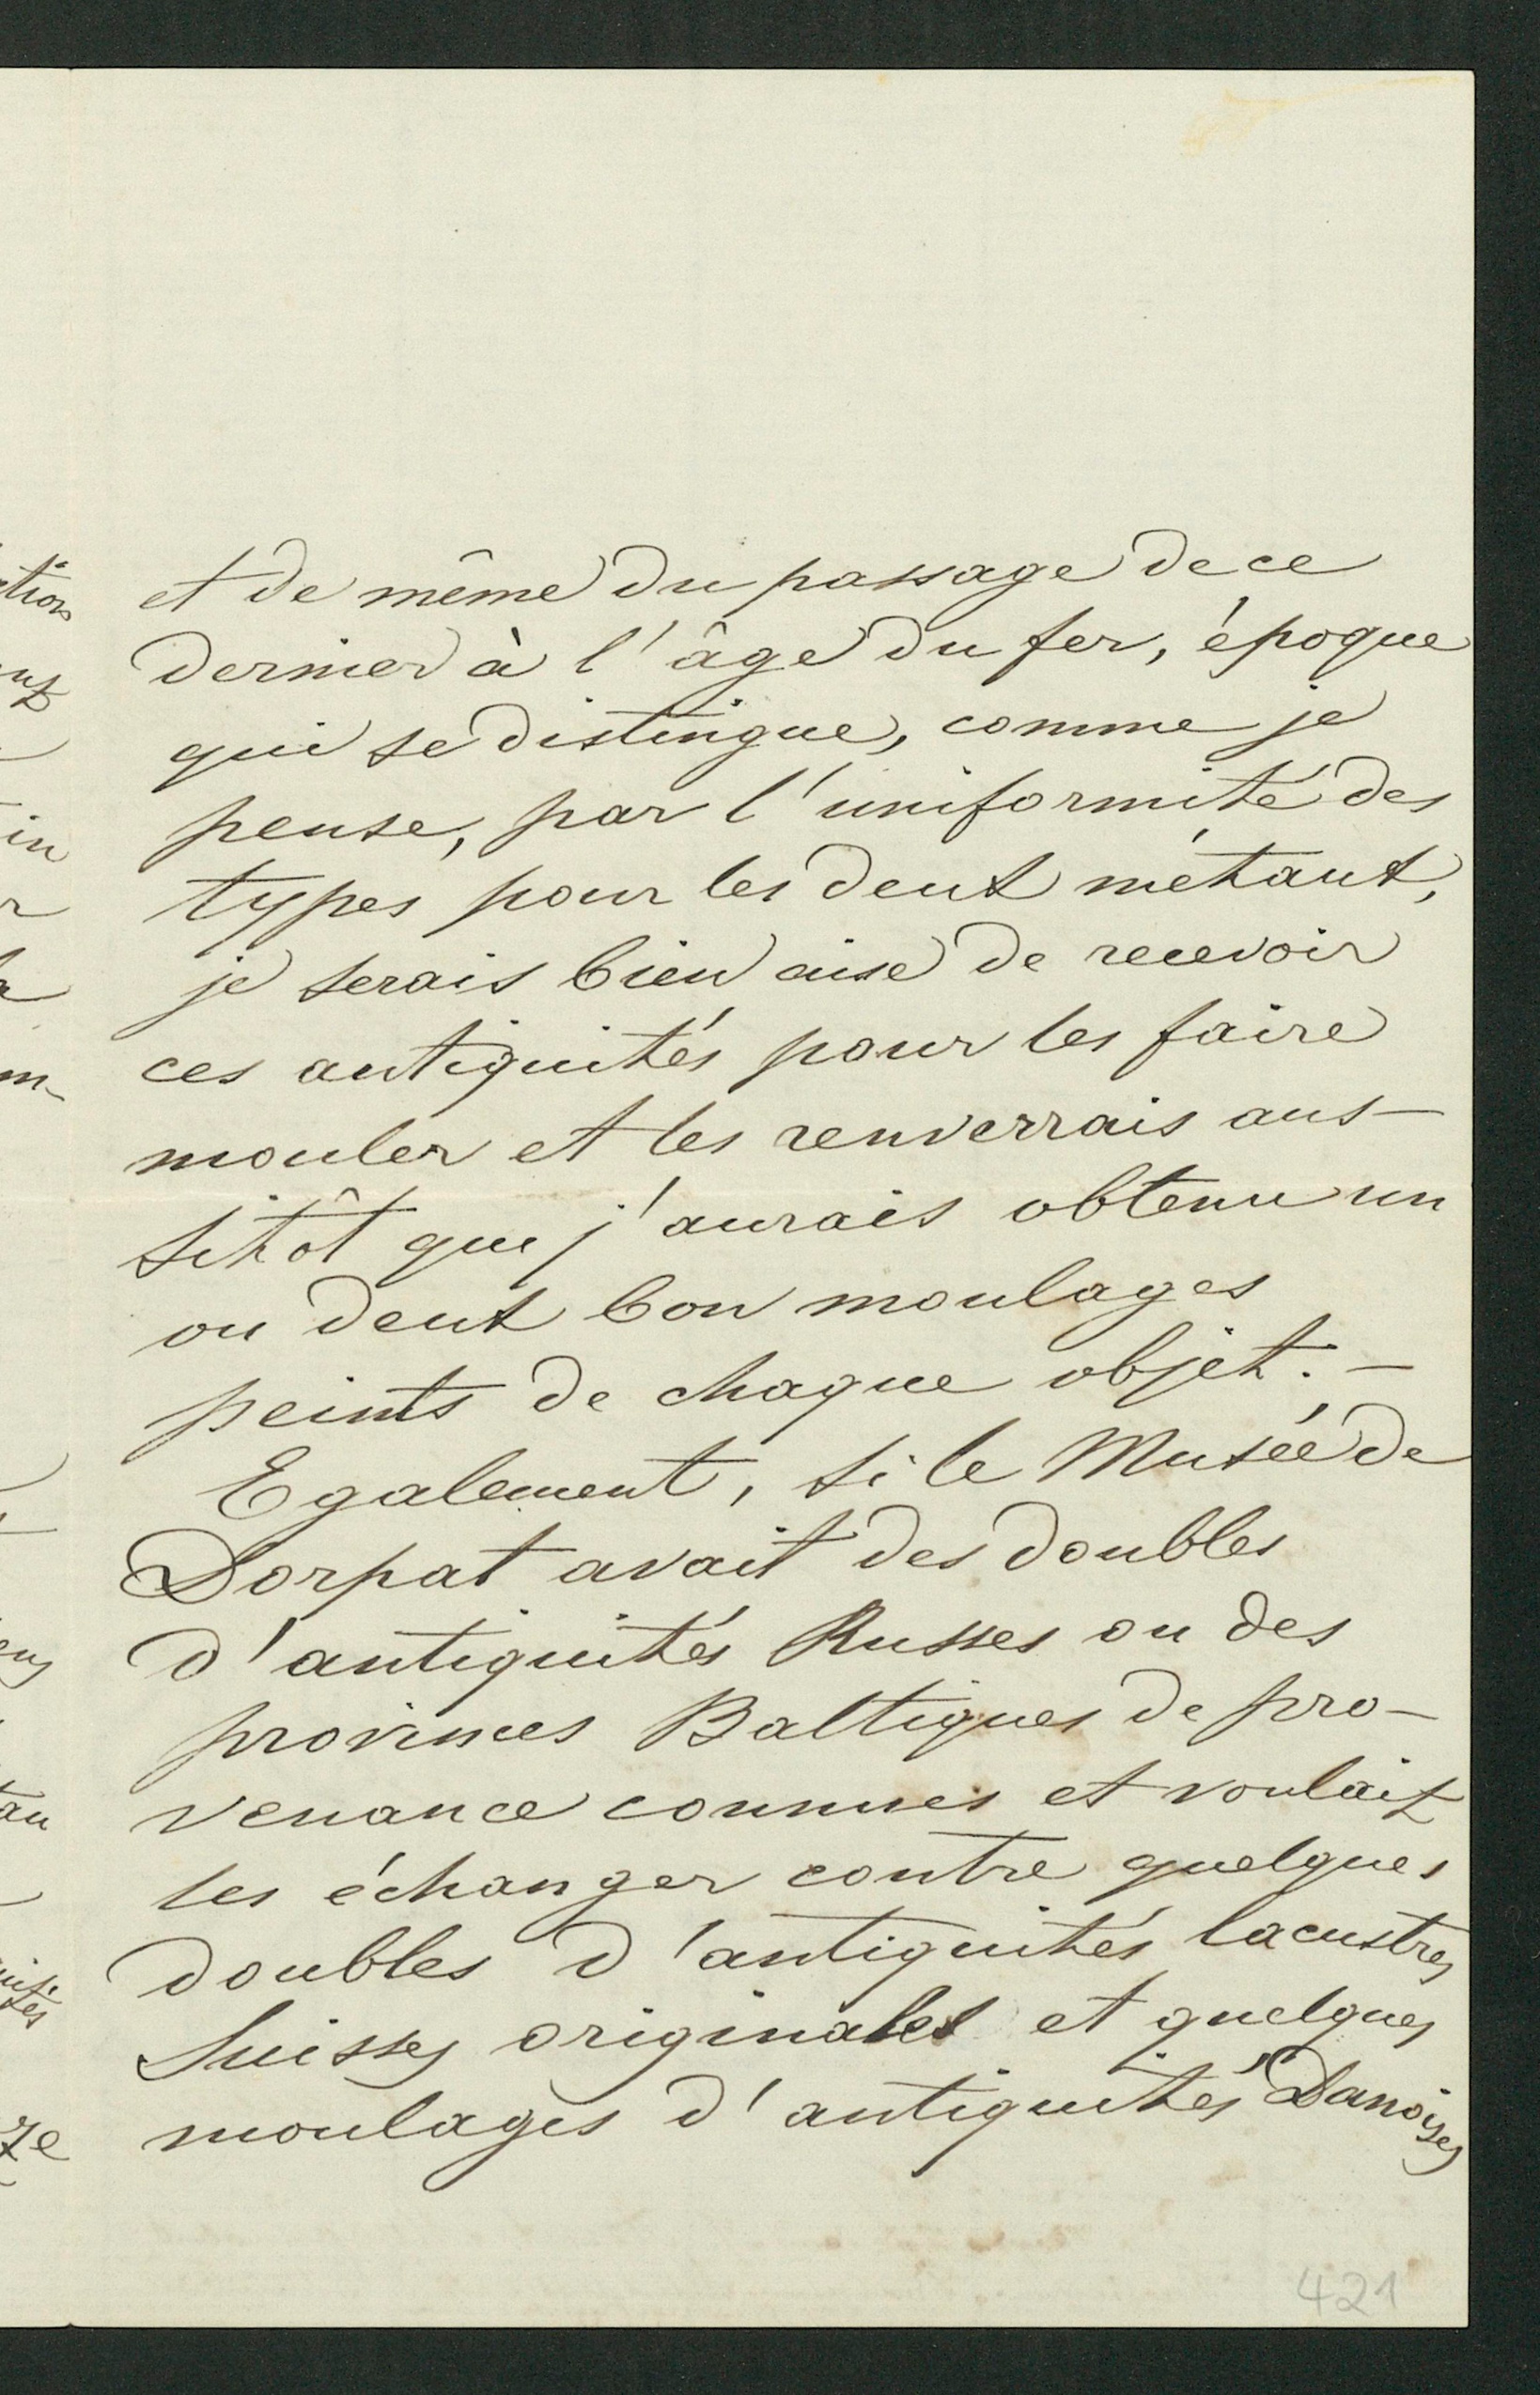 et de même du passage de ce
dernier à l'âge du fer, époque
qui se distingue, comme je
pense, par l'uniformité des
types pour les deux métaux,
je serais bien aise de recevoir
ces antiquités pour les faire
mouler et les renverrais aus-
sitôt que j'aurais obtenu un
ou deux bon moulages
peints de chaque objet. —
Egalement, si le Musée de
Dorpat avait des doubles
d'antiquités Russes ou des
provinces Baltiques de pro-
venance connues et voulait
les échanger contre quelques
doubles d'antiquités lacustres
Suisses originales et quelques
moulages d'antiquités Danoises
421